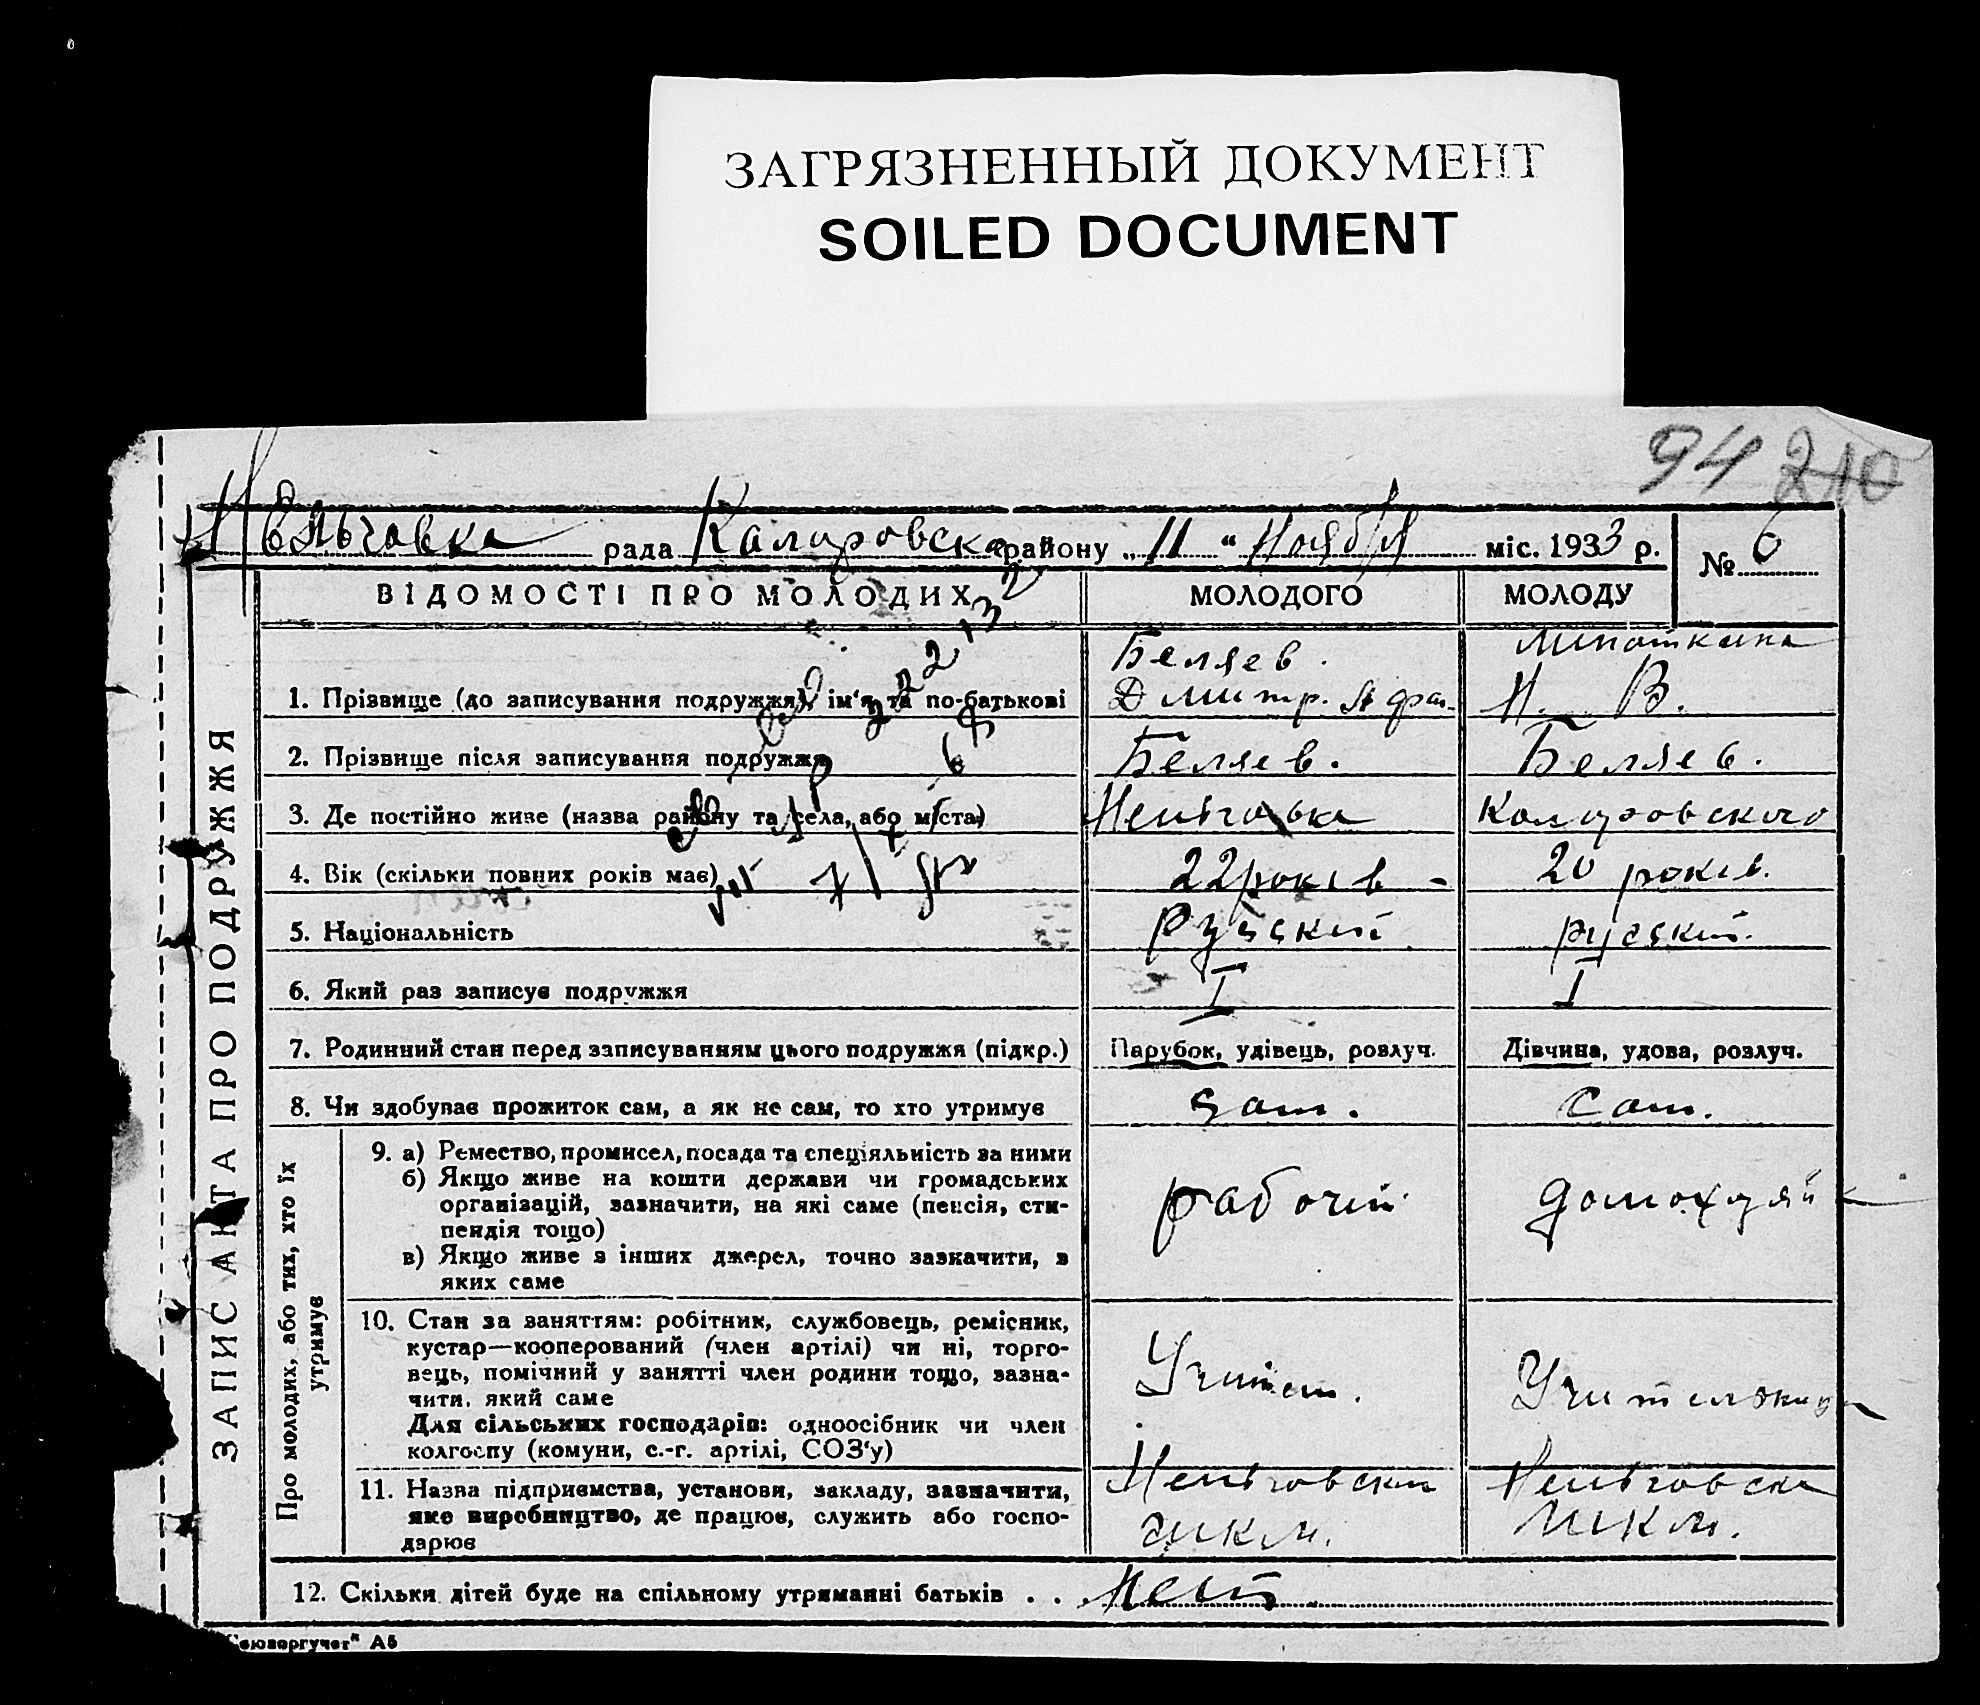 ЗАГРЯЗНЕННЫЙ ДОКУМЕНТ
SOILED DOCUMENT
94 210
Нельговка рада Каларовского району „11“ Ноября міс. 1933 р. № 6
ВІДОМОСТІ ПРО МОЛОДИХ МОЛОДОГО МОЛОДУ
ЗАПИС АКТА ПРО ПОДРУЖЖЯ
1. Прізвище (до записування подружжя), ім'я та по-батькові Беляев. Дмитр. Афан. Н. В.
2. Прізвище після записування подружжя Беляев. Беляев.
3. Де постійно живе (назва району та села, або міста) Нельговка Каларовского
4. Вік (скільки повних років має) 22 років - 20 років.
5. Національність Русский русский.
6. Який раз записує подружжя I I
7. Родинний стан перед записуванням цього подружжя (підкр.) Парубок, удівець, розлуч. Дівчина, удова, розлуч.
8. Чи здобуває прожиток сам, а як не сам, то хто утримує сам. сам.
Про молодих, або тих, хто їх утримує
9. а) Ремество, промисел, посада та спеціяльність за ними
б) Якщо живе на кошти держави чи громадських
організацій, зазначити, на які саме (пенсія, сти-
пендія тощо)
в) Якщо живе з інших джерел, точно зазначити, з
яких саме
рабочий
10. Стан за заняттям: робітник, службовець, ремісник,
кустар—кооперований (член артілі) чи ні, торго-
вець, помічний у занятті член родини тощо, зазна-
чити, який саме
Для сільських господарів: одноосібник чи член
колгоспу (комуни, с.-г. артілі, СОЗ'у)
Учител. Учительница
11. Назва підприємства, установи, закладу, зазначити,
яке виробництво, де працює, служить або госпо-
дарює
Нельговская Нельговска
12. Скільки дітей буде на спільному утриманні батьків . . Нет